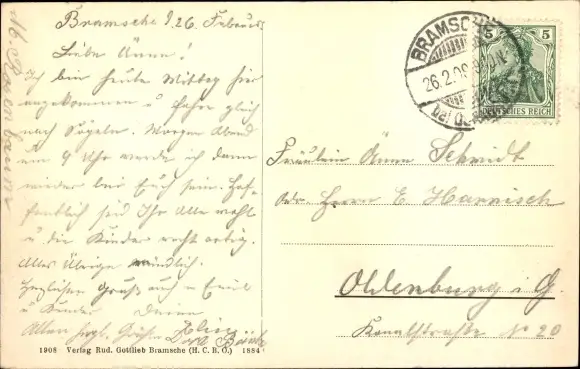 Bramsche d. 26. Februar
Liebe Änne!
Ich bin heute Mittag hier
angekommen u. fahre gleich
nach Sögeln. Morgen Abend
um 9 Uhr werde ich dann
wieder bei Euch sein. Hof-
fentlich seid Ihr Alle wohl
u. die Kinder recht artig.
Alles Übrige mündlich.
Herzlichen Gruß auch an Emil
u Kinder Deine
Allen herzl. Grüße
1908 Verlag Rud. Gottlieb Bramsche (H. C. B. O.) 1884
BRAMSCHE
26.2.09
5 5
DEUTSCHES REICH
Fräulein Änne Schmidt
Adr. Herrn E. Harnisch
Oldenburg i. G.
Kanalstraße No 20